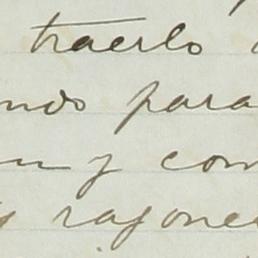 traerlo
ndo para
n y com
s razones